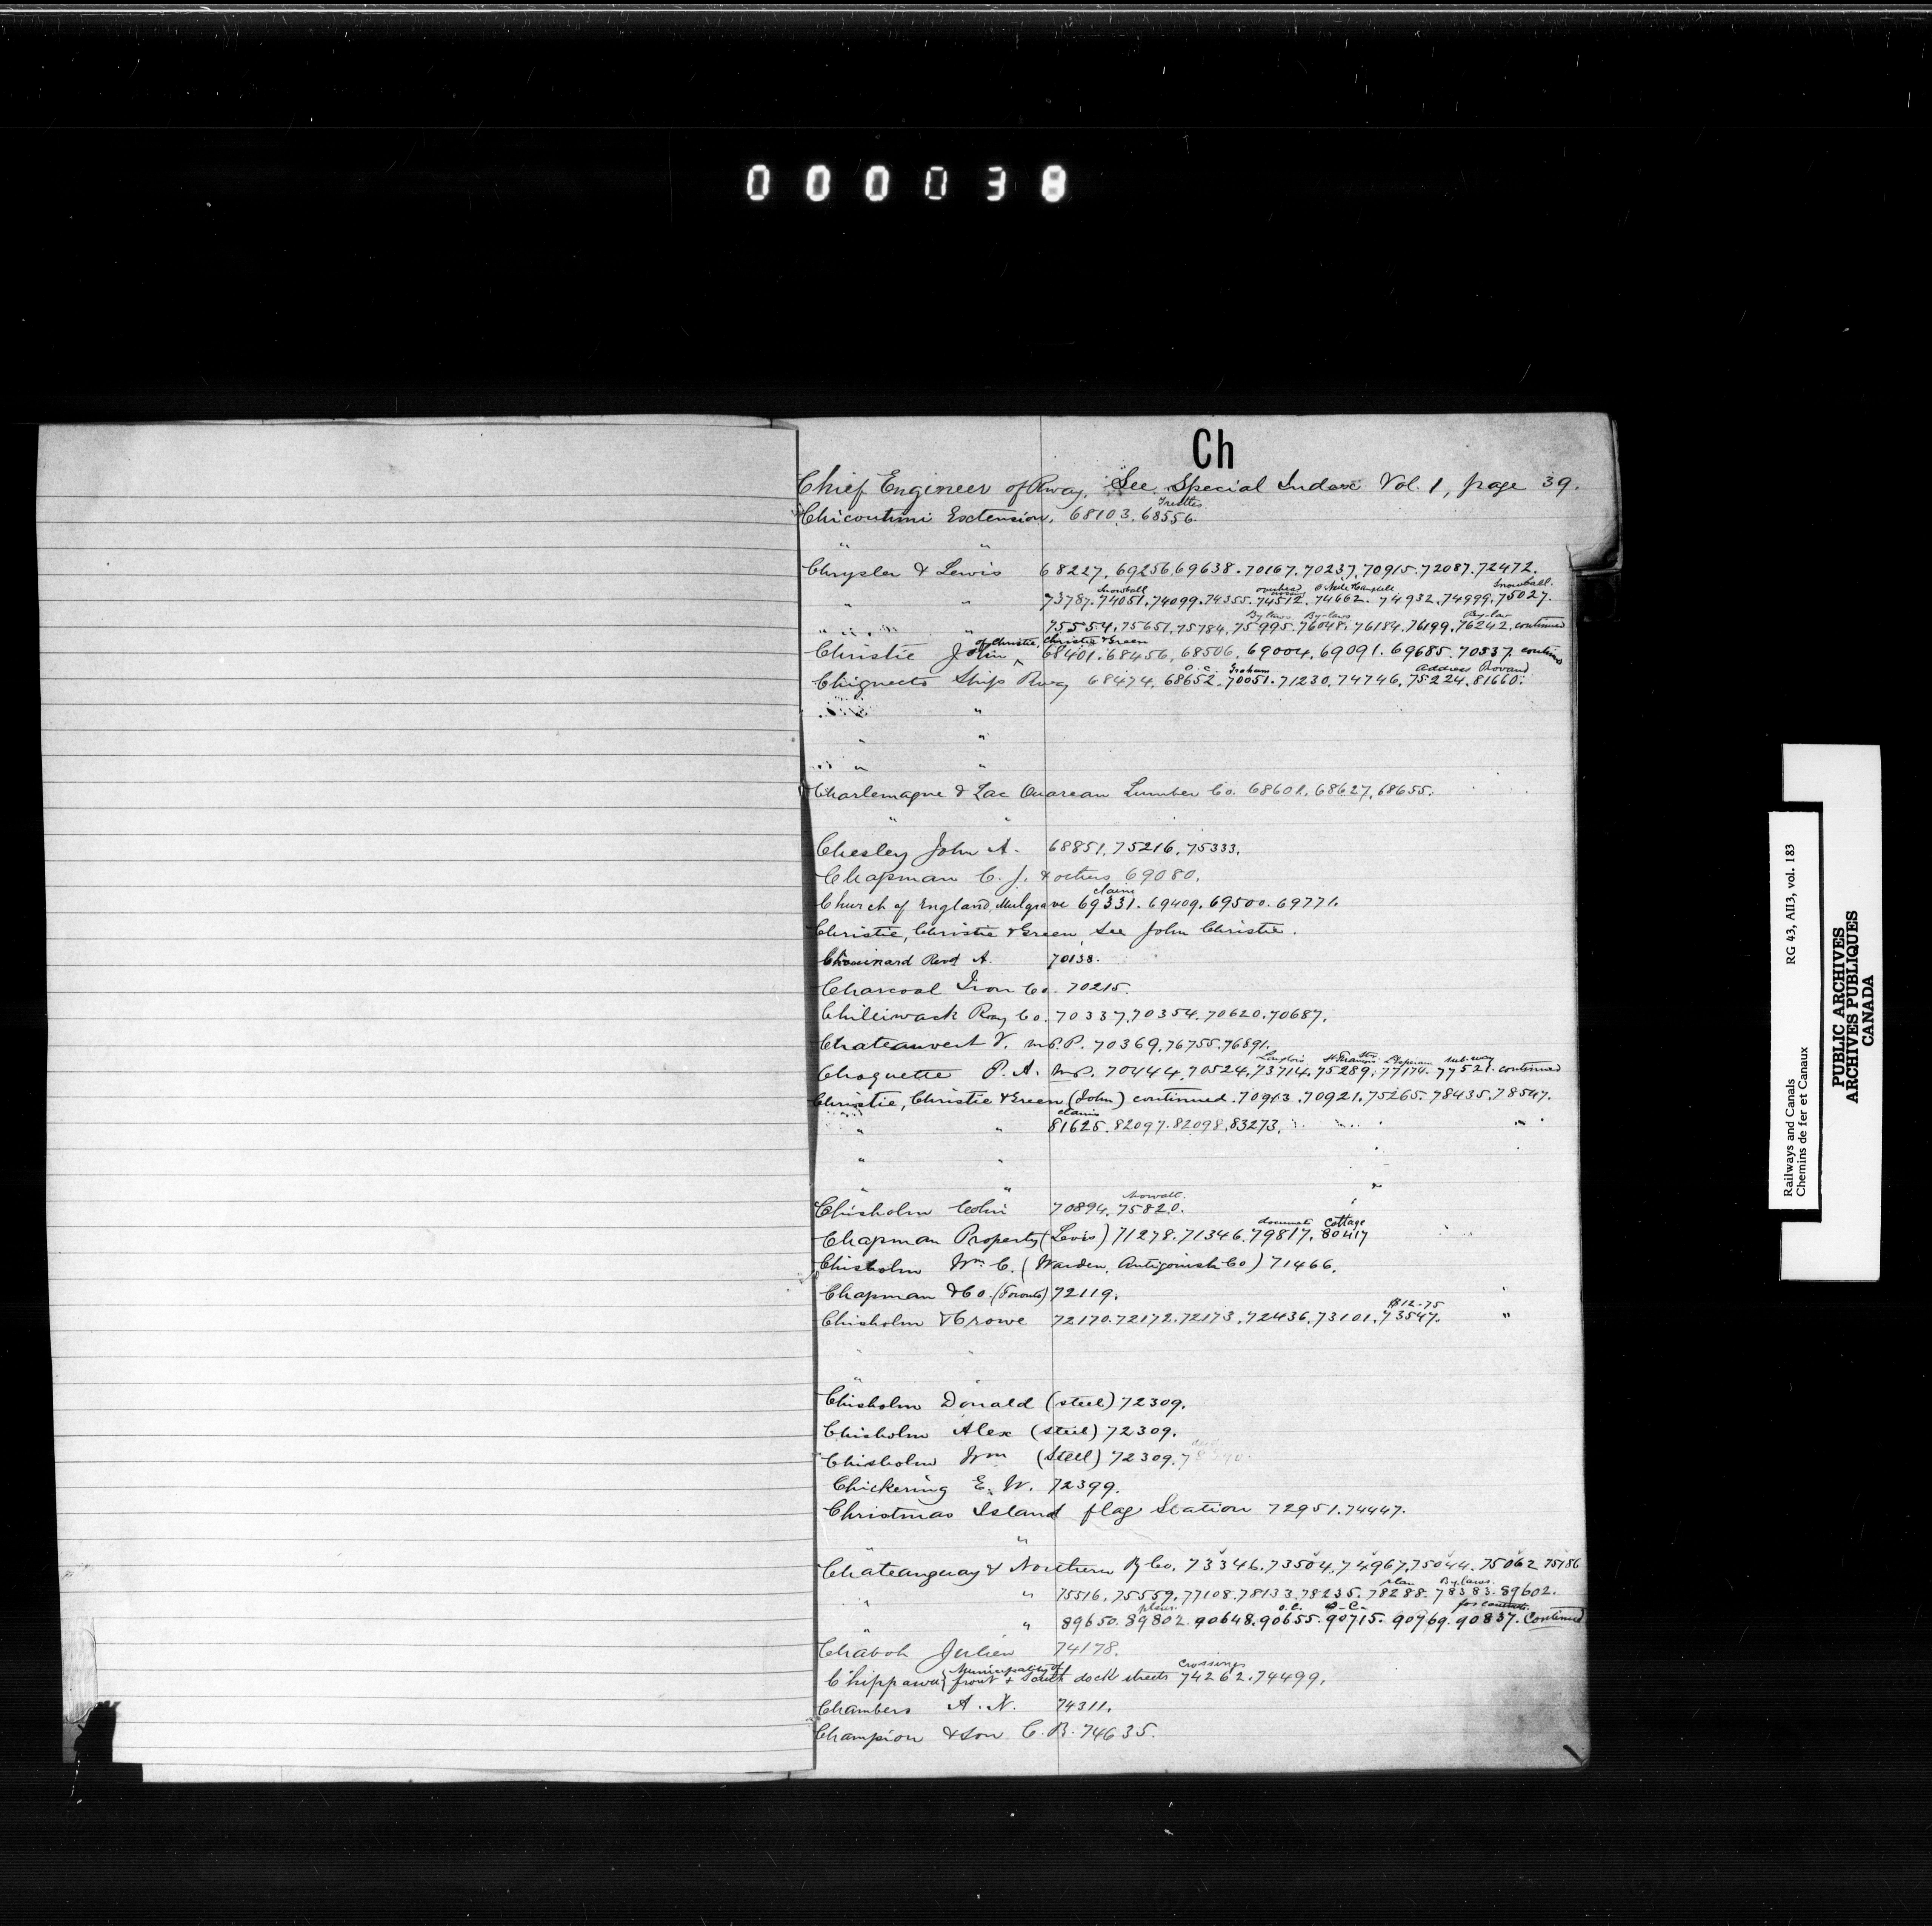 000038
Ch
Chief Engineer of Rway. See Special Index Vol. 1, page 39.
Trestles
Chicoutimi Extension, 68103. 68556.
" "
Chrysler & Lewis 68227. 69256. 69638. 70167. 70237. 70915. 72087. 72472.
Snowball overhead O'Neil & Campbell Snowball.
" " 73787. 74051. 74099. 74355. 74512. 74662. 74932. 74999. 75027.
By-laws By-laws By-law
" " 75554. 75651. 75784. 75995. 76048. 76184. 76199. 76242. continued
of Christie, Christie & Green
Christie John 68401. 68456. 68506. 69004. 69091. 69685. 70537. continued
O.C. Graham address Provand
Chignecto Ship Rway 68474. 68652. 70051. 71230. 74746. 75224. 81660.
"
" "
" "
Charlemagne & Lac Ouareau Lumber Co. 68601. 68627. 68655.
" "
Chesley John A. 68851. 75216. 75333.
Chapman C. J. & others 69080.
claim
Church of England, Mulgrave 69331. 69409. 69500. 69771.
Christie, Christie & Green, See John Christie.
Chouinard Revd A. 70138.
Charcoal Iron Co. 70215.
Chilliwack Rway Co. 70337. 70354. 70620. 70687.
Chateauvert V. M.P.P. 70369. 76755. 76891.
Langlois St. Francois Stn. L'Esperance sub-way
Choquette P. A. M.P. 70444. 70524. 73714. 75289. 77174. 77521. continued
Christie, Christie & Green (John) continued. 70913. 70921. 75265. 78435. 78547.
claims
" " 81625. 82097. 82098. 83273.
" "
" "
Chisholm Colin 70894. 75820.
documents cottage
Chapman Property (Levis) 71278. 71346. 79817. 80417
Chisholm Wm C. (Warden, Antigonish Co) 71466.
Chapman & Co. (Toronto) 72119.
$12-75
Chisholm & Crowe 72170. 72172. 72173. 72436. 73101. 73547. "
" "
"
Chisholm Donald (steel) 72309.
Chisholm Alex (steel) 72309.
Chisholm Wm (Steel) 72309.
Chickering E. W. 72399.
Christmas Island flag Station 72951. 74447.
" "
Chateauguay & Northern Ry Co. 73346. 73504. 74967. 75044. 75062 75186
plan By-laws.
" " 75516. 75559. 77108. 78133. 78235. 78288. 78383. 89602.
plans O.C. O-C- for contract.
" " 89650. 89802. 90648. 90655. 90715. 90769. 90837. Continued
Chabot Julien 74178.
Municipality of Crossings
Chippawa front & South dock streets 74262. 74499.
Chambers A. N. 74311.
Champion & Son C. B. 74635.
Railways and Canals RG 43, AII3, vol. 183
Chemins de fer et Canaux
PUBLIC ARCHIVES
ARCHIVES PUBLIQUES
CANADA